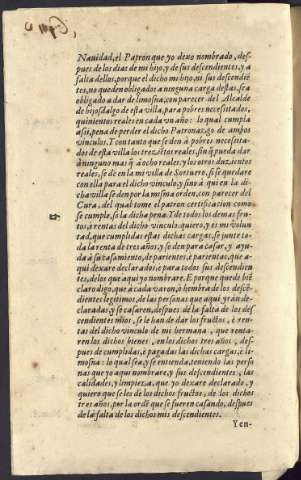 Nauidad, el Patron que yo dexo nombrado, des-
pues de los dias de mi hijo, y de sus descendientes, y a
falta dellos, porque el dicho mi hijo, ni sus descendiē
tes, no queden obligados a ninguna carga destas, sea
obligado a dar de limosna, con parecer del Alcalde
de hijosdalgo de esta villa, para pobres necessitados,
quinientos reales en cada vn año: lo qual cumpla
assi, pena de perder el dicho Patronazgo de ambos
vinculos. Y con tanto que se den à pobres necessita-
dos de esta villa los trezientos reales, sin q̄ pueda dar
à ninguno mas q̄ à ocho reales; y los otros duzientos
reales, se dē en la mi villa de Sortuero, si se quedare
con ella para el dicho vinculo, y sino à quien la di-
cha villa se den por la mesma orden, con parecer del
Cura, del qual tome el patron certificacion como
se cumple, so la dicha pena. Y de todos los demas fru-
tos, è rentas del dicho vinculo, quiero, y es mi volun-
tad, que cumplidas estas dichas cargas, se junte to-
da la renta de tres años, y se den para casar, y ayu-
da à su casamiento, de parientes, è parientas, que a-
qui dexare declaradas, e para todos sus descendien-
tes, de los que aqui yo nombrare. E porque quede biē
claro digo, que à cada varon, ò hembra de los descē-
dientes legitimos, de las personas que aqui yràn de-
claradas, y se casaren, despues de la falta de los des-
cendientes mios, se le han de dar los fructos, è ren-
tas del dicho vinculo de mi hermana, que renta-
ren los dichos bienes, en los dichos tres años, des-
pues de cumplidas, è pagadas las dichas cargas, è li-
mosna: lo qual sea, y se entienda, teniendo las perso
nas que yo aqui nombrare, y sus descendientes, las
calidades, y limpieza, que yo dexare declarado, y
quiero que se les dè los dichos fructos, de los dichos
tres años, por la ordē que se fueren casando, despues
de la falta de los dichos mis descendientes.
Yen-